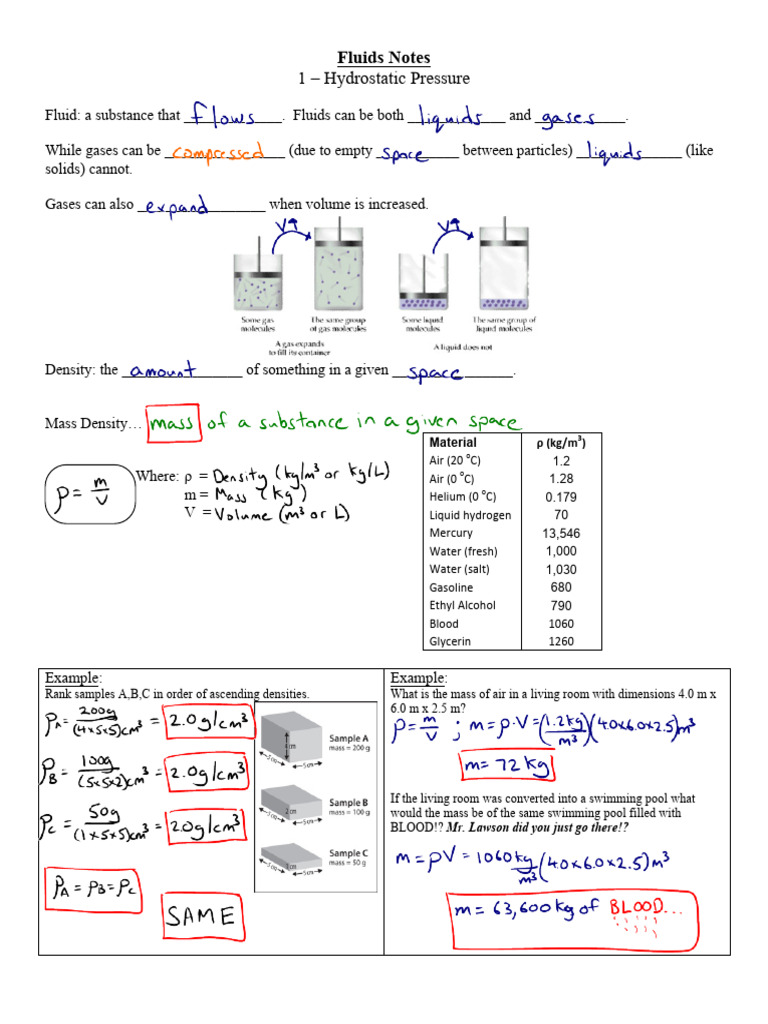 Fluids Notes
1 – Hydrostatic Pressure
Fluid: a substance that flows. Fluids can be both liquids and gases.
While gases can be compressed (due to empty space between particles) liquids (like
solids) cannot.
Gases can also expand when volume is increased.
V↑ V↑
Some gas molecules
The same group of gas molecules
Some liquid molecules
The same group of liquid molecules
A gas expands to fill its container
A liquid does not
Density: the amount of something in a given space.
Mass Density… mass of a substance in a given space
ρ = m/V
Where: ρ = Density (kg/m³ or kg/L)
m = Mass (kg)
V = Volume (m³ or L)
Material ρ (kg/m³)
Air (20 °C) 1.2
Air (0 °C) 1.28
Helium (0 °C) 0.179
Liquid hydrogen 70
Mercury 13,546
Water (fresh) 1,000
Water (salt) 1,030
Gasoline 680
Ethyl Alcohol 790
Blood 1060
Glycerin 1260
Example:
Rank samples A,B,C in order of ascending densities.
ρA = 200g/(4x5x5)cm³ = 2.0g/cm³
ρB = 100g/(5x5x2)cm³ = 2.0g/cm³
ρC = 50g/(1x5x5)cm³ = 2.0g/cm³
ρA = ρB = ρC
SAME
Sample A
mass = 200 g
4 cm
5 cm 5 cm
Sample B
mass = 100 g
2 cm
5 cm 5 cm
Sample C
mass = 50 g
5 cm 5 cm
Example:
What is the mass of air in a living room with dimensions 4.0 m x
6.0 m x 2.5 m?
ρ = m/V ; m = ρ·V = (1.2kg/m³)(4.0x6.0x2.5)m³
m = 72 kg
If the living room was converted into a swimming pool what
would the mass be of the same swimming pool filled with
BLOOD!? Mr. Lawson did you just go there!?
m = ρV = 1060kg/m³ (4.0x6.0x2.5)m³
m = 63,600 kg of BLOOD...